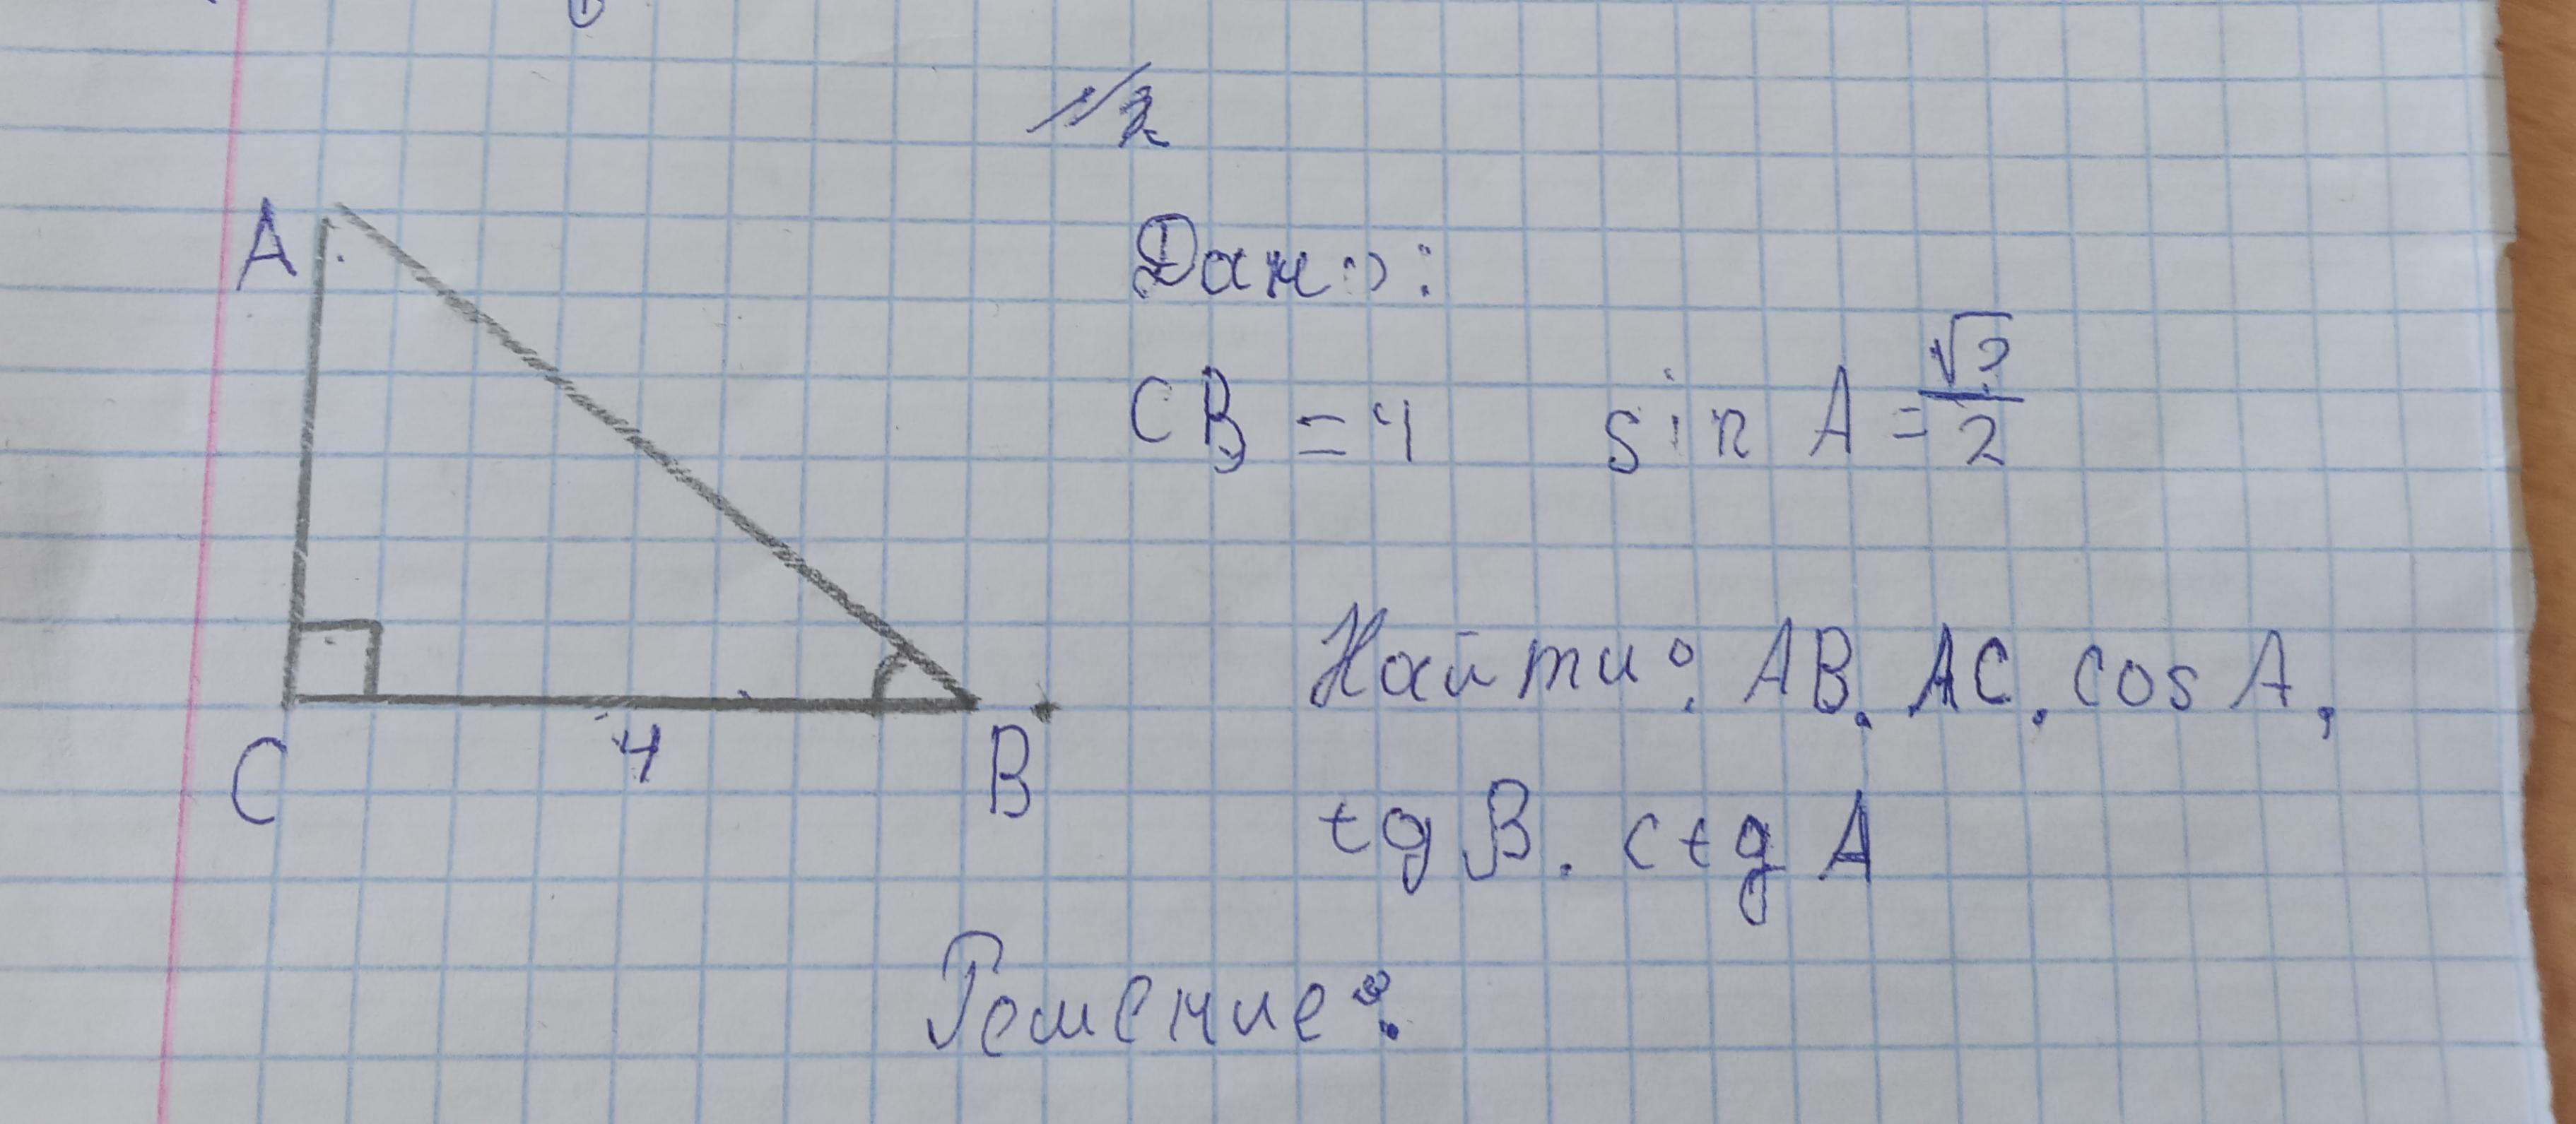 №2
A
Дано:
CB = 4 sin A = √2/2
Найти: AB, AC, cos A,
4
C
B
tg B, ctg A
Решение: